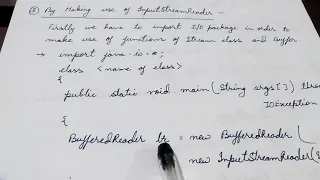 ② By Making use of InputStreamReader -
Firstly we have to import I/O package in order
to make use of functions of Stream class and Buffer.
→ import java.io.*;
class <name of class>
{
public static void main(String args[]) th
IOException
{
BufferedReader br = new BufferedReader(
new InputStreamReader(S